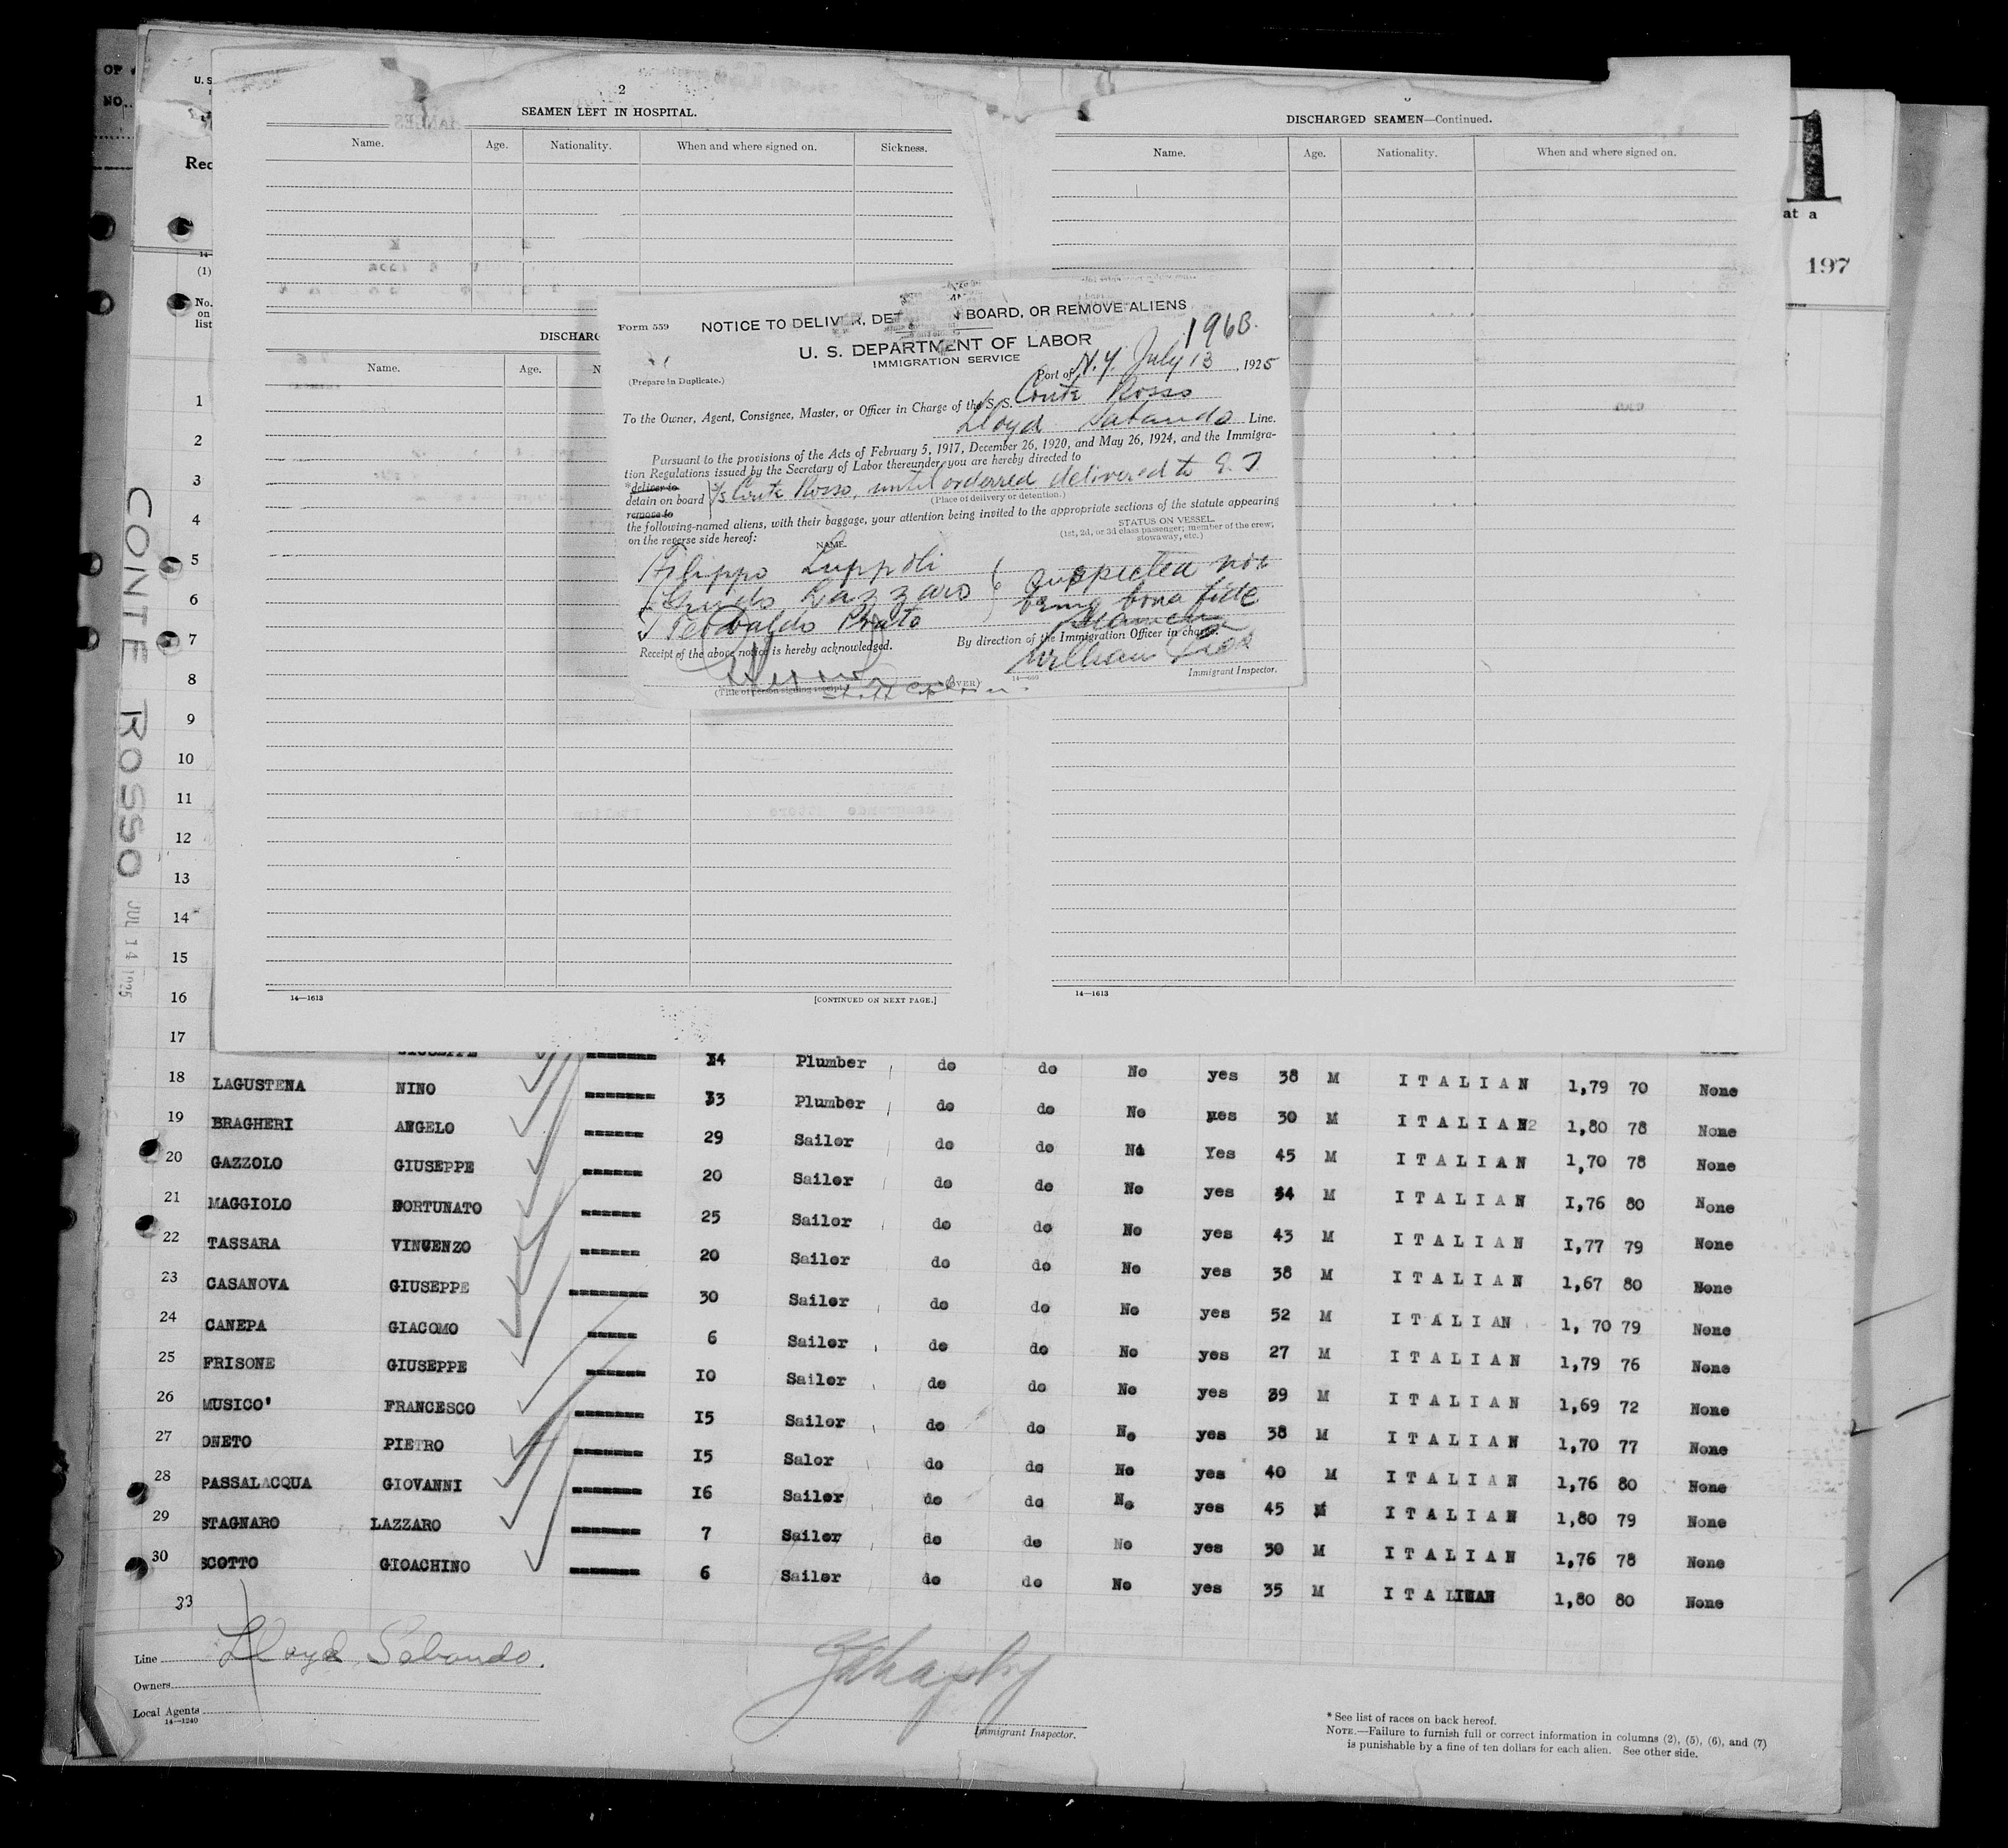 OF
NO.
U. S
Rec
(1)
No.
on
list
CONTE ROSSO JUL 14 1925
1
at a
197
2
SEAMEN LEFT IN HOSPITAL.
Name. Age. Nationality. When and where signed on. Sickness.
DISCHARG
Name. Age. N
14—1613 [CONTINUED ON NEXT PAGE.]
DISCHARGED SEAMEN—Continued.
Name. Age. Nationality. When and where signed on.
14—1613
Form 559 NOTICE TO DELIVER, DET N BOARD, OR REMOVE ALIENS
196B.
U. S. DEPARTMENT OF LABOR
IMMIGRATION SERVICE
(Prepare in Duplicate.) Port of N.Y. July 13, 1925
To the Owner, Agent, Consignee, Master, or Officer in Charge of the S. S. Conte Rosso
Lloyd Sabaudo Line.
Pursuant to the provisions of the Acts of February 5, 1917, December 26, 1920, and May 26, 1924, and the Immigra-
tion Regulations issued by the Secretary of Labor thereunder, you are hereby directed to
*deliver to
detain on board S/s Conte Rosso, until orderred delivered to E. I.
remove to (Place of delivery or detention.)
the following-named aliens, with their baggage, your attention being invited to the appropriate sections of the statute appearing
on the reverse side hereof:
NAME. STATUS ON VESSEL.
(1st, 2d, or 3d class passenger; member of the crew;
stowaway, etc.)
Filippo Luppoli
Guido Lazzaro suspected not
Teobaldo Prato being bona fide
seamen
By direction of the Immigration Officer in charge.
Receipt of the above notice is hereby acknowledged.
William
Immigrant Inspector.
(Title of person signing receipt.) (OVER) 14—680
Staff Captain.
1
2
3
4
5
6
7
8
9
10
11
12
13
14
15
16
17 GIUSEPPE 34 Plumber do do No yes 38 M ITALIAN 1,79 70 None
18 LAGUSTENA NINO 33 Plumber do do No yes 30 M ITALIAN 1,80 78 None
19 BRAGHERI ANGELO 29 Sailor do do No Yes 45 M ITALIAN 1,70 78 None
20 GAZZOLO GIUSEPPE 20 Sailor do do No yes 34 M ITALIAN I,76 80 None
21 MAGGIOLO FORTUNATO 25 Sailor do do No yes 43 M ITALIAN I,77 79 None
22 TASSARA VINCENZO 20 Sailor do do No yes 38 M ITALIAN 1,67 80 None
23 CASANOVA GIUSEPPE 30 Sailor do do No yes 52 M ITALIAN 1, 70 79 None
24 CANEPA GIACOMO 6 Sailor do do No yes 27 M ITALIAN 1,79 76 None
25 FRISONE GIUSEPPE IO Sailor do do No yes 39 M ITALIAN 1,69 72 None
26 MUSICO' FRANCESCO I5 Sailor do do No yes 38 M ITALIAN 1,70 77 None
27 ONETO PIETRO I5 Salor do do No yes 40 M ITALIAN 1,76 80 None
28 PASSALACQUA GIOVANNI I6 Sailor do do No yes 45 M ITALIAN 1,80 79 None
29 STAGNARO LAZZARO 7 Sailor do do No yes 30 M ITALIAN 1,76 78 None
30 SCOTTO GIOACHINO 6 Sailor do do No yes 35 M ITALIAN 1,80 80 None
33
Line Lloyd Sabaudo.
Owners
Local Agents
14—1240
Immigrant Inspector.
* See list of races on back hereof.
NOTE.—Failure to furnish full or correct information in columns (2), (5), (6), and (7)
is punishable by a fine of ten dollars for each alien. See other side.